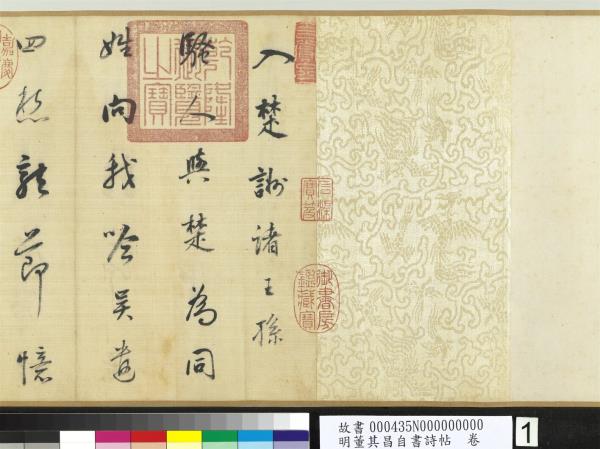 入楚謝諸王孫
騷人與楚為同
姓向我吟吳
四愁新節憶
乾隆御覽之寶
御書房鑑藏寶
嘉慶
故書 000435N000000000
明董其昌自書詩帖 卷
1